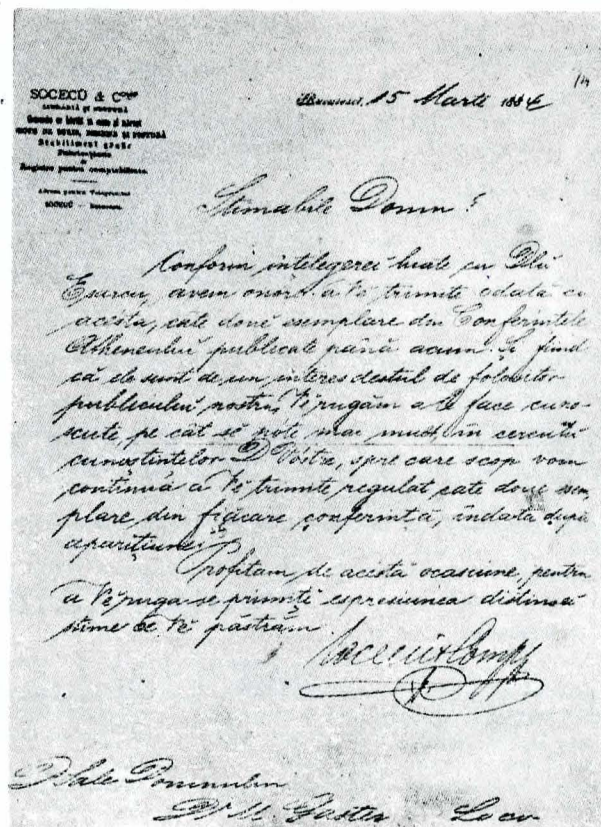 SOCECŬ & Comp
LIBRARIĂ ȘI
Stabiliment grafic
Registre pentru comptabilitate
Adresa pentru Telegrame
SOCECŬ — Bucuresci.
Bucuresci, 15 Martie 1884
Stimabile Domn!
Conform intelegerei luate cu Dlŭ
Esarcu, avem onore a Vĕ trimite odată cu
acésta, câte douĕ esemplare din Conferintele
Atheneuluĭ publicate până acum. Și fiind
că ele sunt de un interes destul de folositor
publiculuĭ nostru, Vĕ rugăm a le face cuno-
scute, pe cât se póte mai mult, în cercul
cunostintelor D Vóstre, spre care scop vom
continuă a Vĕ trimite regulat câte douĕ esem-
plare din fiăcare conferintă, îndată după
aparițiune.
Profităm de acéstă ocasiune, pentru
a Vĕ ruga se primiți espresiunea distinsei
stime ce Vĕ păstrăm
Socecŭ & Comp
D Sale Domnului
Dr M. Gaster Loco